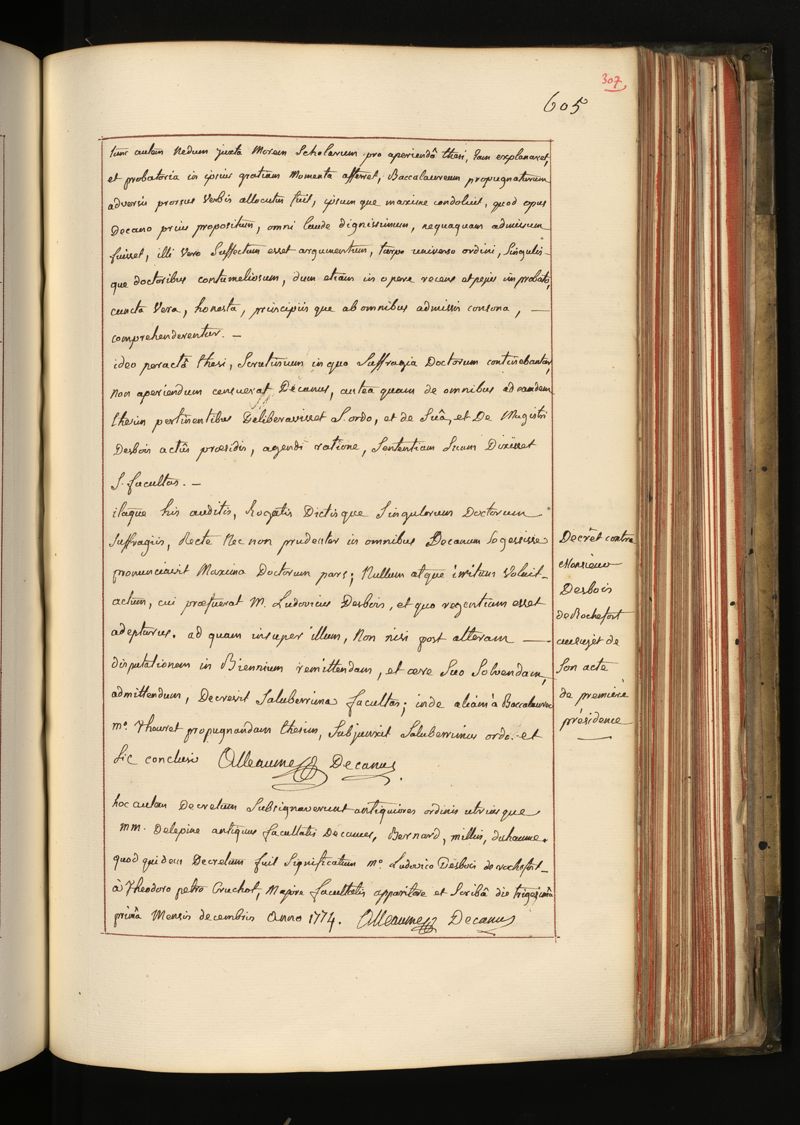 307
605
tunc autem nedum juxta Morem Scholarum pro aperiendâ thesi, Eam explanaret
et probatoria in ipsius gratiam Momenta afferret, Baccalaureum propugnaturum
adversis prorsus Verbis allocutus fuit, ipsumque maxime condoluit, quod opus
Decano prius propositum, omni laude dignissimum, nequaquam admissum
fuisset, illi Vero Suffectum esset argumentum, turpe universo ordini, Singulis-
que doctoribus contumeliosum, dum etiam in opere recens et pejus improbato,
cuncta Vera, honesta, principiis que ab omnibus admissis consona, —
comprehenderentur. —
ideo peractâ thesi, Scrutinium in quo Suffragia Doctorum continebantur,
non aperiendum censuerat Decanus, antea quam de omnibus ad eamdem
thesim pertinentibus Deliberavisset S. ordo, et de Suâ, et De Magistri
Desbois actûs præsidis, agendi ratione, Sententiam Suam Dixisset
S. facultas. —
itaque his auditis, Rogatis Dictisque Singulorum Doctorum
Suffragiis, Recte Nec non prudenter in omnibus Decanum Se gessisse
pronunciavit Maxima Doctorum pars; Nullum atque irritum Voluit
actum, cui præfuerat M. Ludovicus Desbois, et quo regentiam esset
adepturus. ad quam insuper illum, Non nisi post alteram —
disputationem in Biennium remittendam, et ære Suo Solvendam,
admittendum, Decrevit Saluberrima facultas; inde aliam à Baccalaureo
mo. Thouret propugnandam thesim, Subjunxit Saluberrimus ordo. et
Sic conclusi Alleaume Decanus.
Decrêt contre
Monsieur
Desbois
de Rochefort
au sujet de
Son acte
de première
présidence
hoc autem Decretum Subsignaverunt antiquiores ordinis utriusque
MM. Delepine antiquus facultatis Decanus, Bernard, millin, duhaume.
quod quidem Decretum fuit Significatum mo. Ludovico Desbois de rochefort
à Theodoro petro Cruchot, Majore facultatis apparitore et Scribâ die trigesimâ
primâ Mensis decembris Anno 1774. Alleaume Decanus